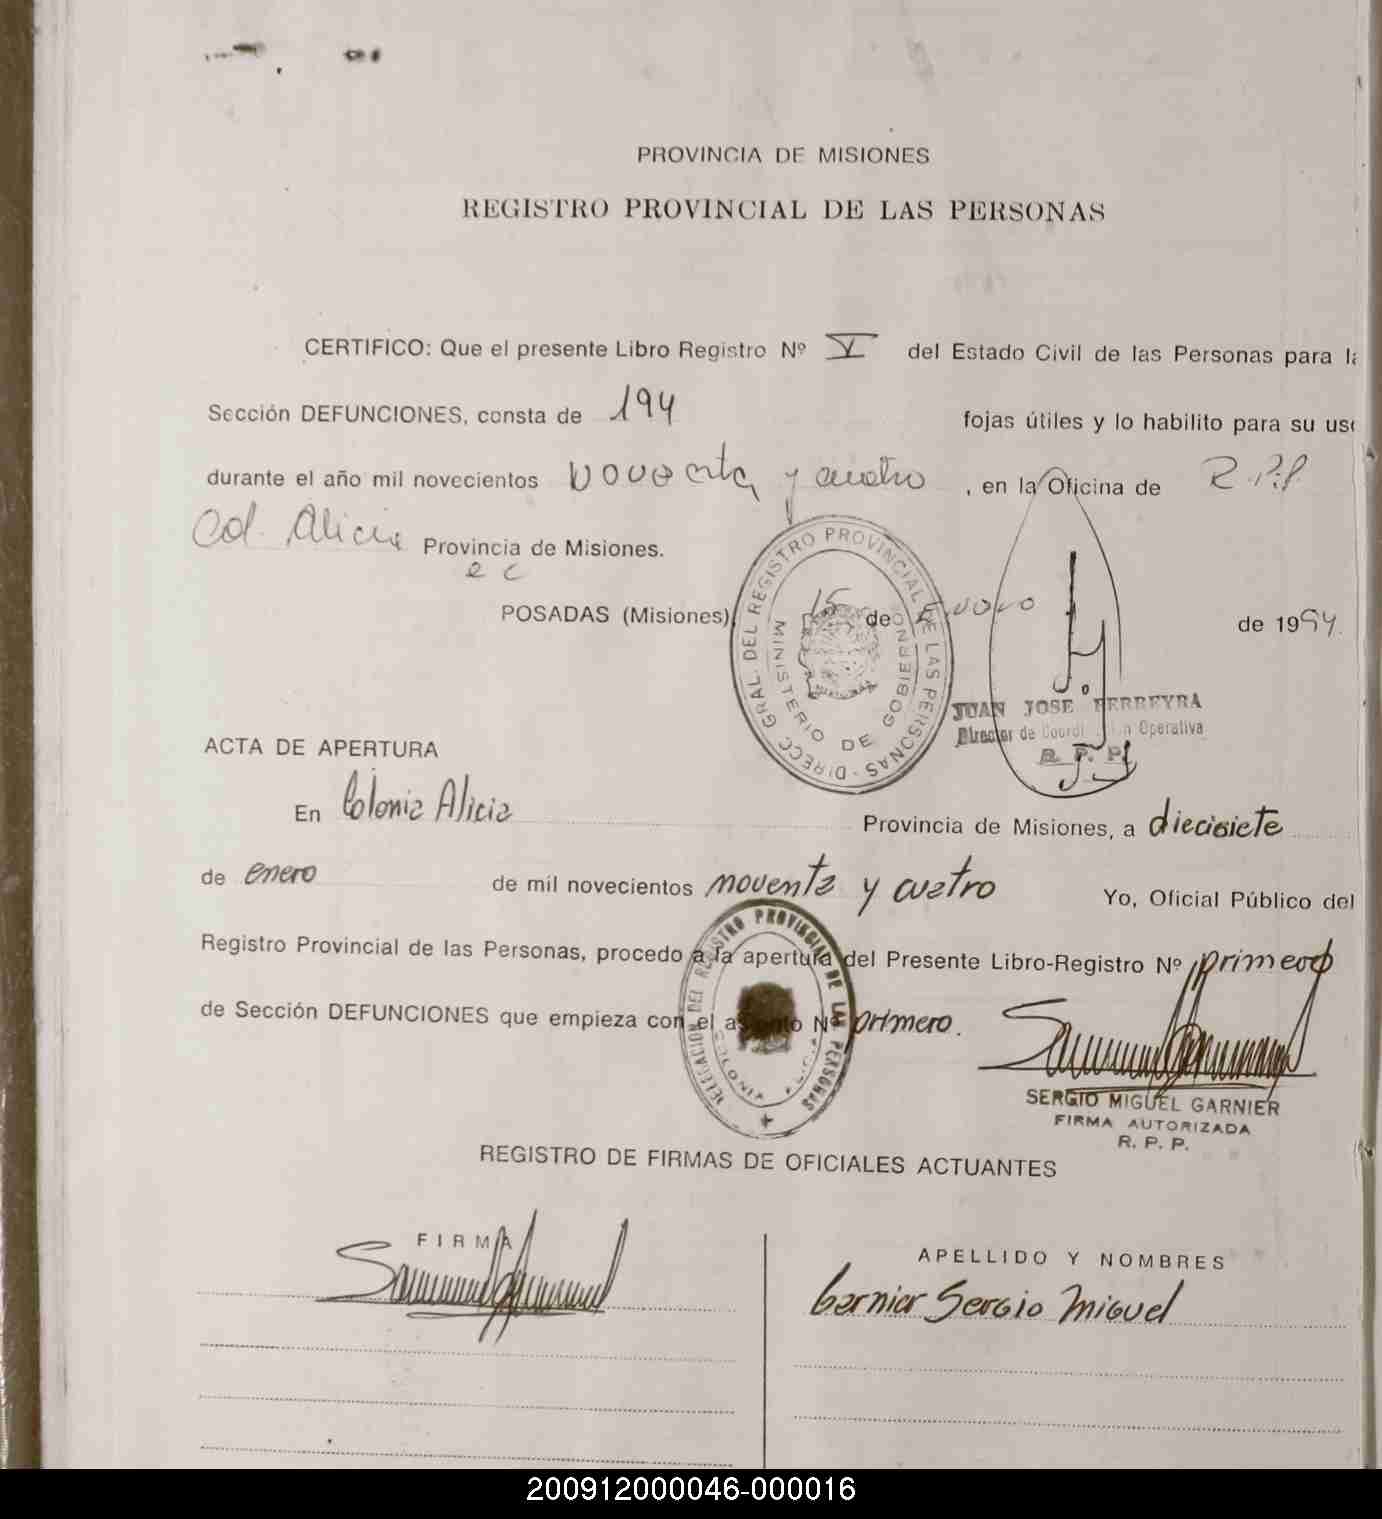 PROVINCIA DE MISIONES
REGISTRO PROVINCIAL DE LAS PERSONAS
CERTIFICO: Que el presente Libro Registro Nº V del Estado Civil de las Personas para la
Sección DEFUNCIONES, consta de 194 fojas útiles y lo habilito para su uso
durante el año mil novecientos noventa y cuatro, en la Oficina de R.P.P.
Col. Alicia Provincia de Misiones.
POSADAS (Misiones) 15 de Enero de 1994.
DIRECC. GRAL. DEL REGISTRO PROVINCIAL DE LAS PERSONAS
MINISTERIO DE GOBIERNO
JUAN JOSE FERREYRA
Director de Operativa
R. P. P.
ACTA DE APERTURA
En Colonia Alicia Provincia de Misiones, a diecisiete
de enero de mil novecientos noventa y cuatro Yo, Oficial Público del
Registro Provincial de las Personas, procedo a la apertura del Presente Libro-Registro Nº primero
de Sección DEFUNCIONES que empieza con el asiento Nº primero.
DELEGACION DEL REGISTRO PROVINCIAL DE LAS PERSONAS
COLONIA ALICIA
SERGIO MIGUEL GARNIER
FIRMA AUTORIZADA
R. P. P.
REGISTRO DE FIRMAS DE OFICIALES ACTUANTES
FIRMA
APELLIDO Y NOMBRES
Garnier Sergio Miguel
200912000046-000016